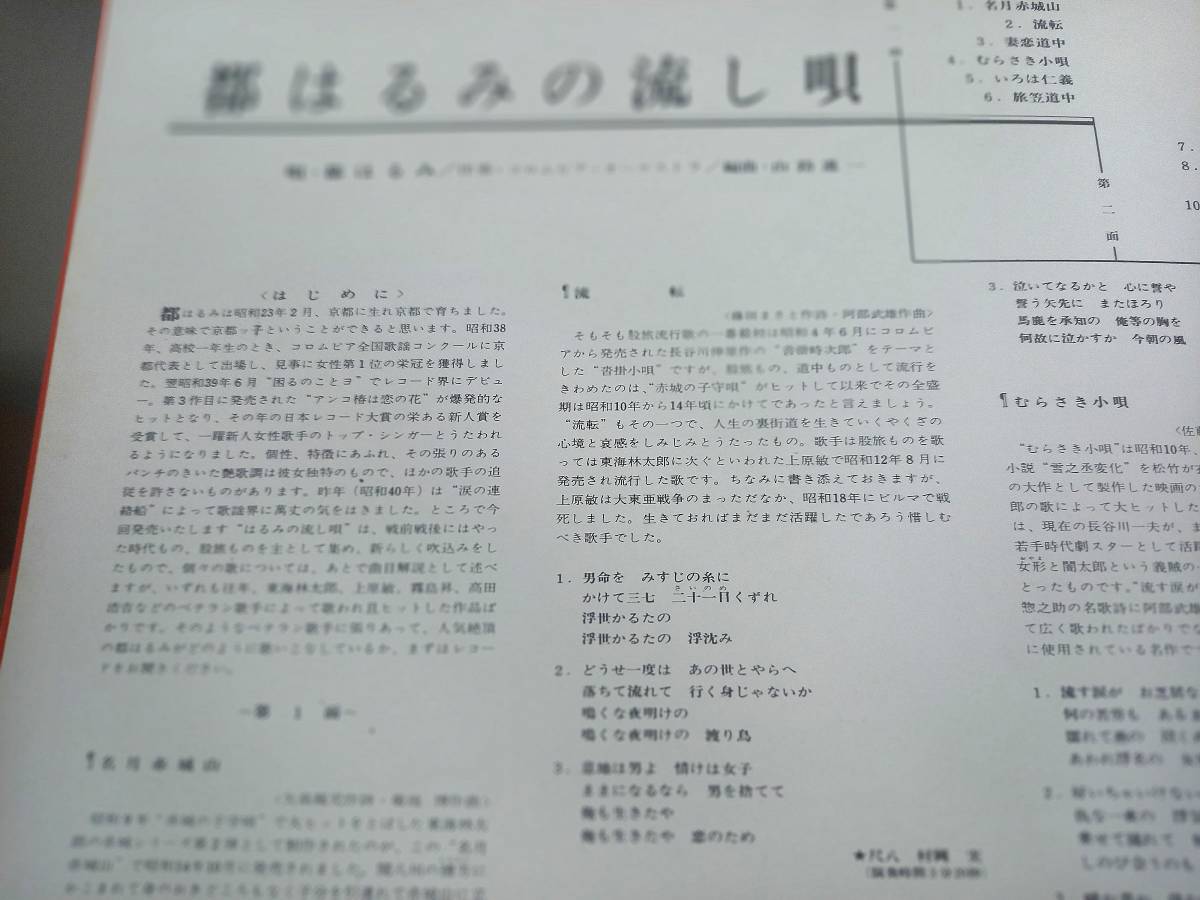 都はるみの流し唄
1. 名月赤城山
2. 流転
3. 妻恋道中
4. むらさき小唄
5. いろは仁義
6. 旅笠道中
第二面
7.
8.
10
〈はじめに〉
都はるみは昭和23年2月、京都に生れ京都で育ちました。
その意味で京都ッ子ということができると思います。昭和38
年、高校一年生のとき、コロムビア全国歌謡コンクールに京
都代表として出場し、見事に女性第1位の栄冠を獲得しまし
た。翌昭和39年6月“困るのことヨ”でレコード界にデビュ
ー。第3作目に発売された“アンコ椿は恋の花”が爆発的な
ヒットとなり、その年の日本レコード大賞の栄ある新人賞を
受賞して、一躍新人女性歌手のトップ・シンガーとうたわれ
るようになりました。個性、特徴にあふれ、その張りのある
パンチのきいた艶歌調は彼女独特のもので、ほかの歌手の追
従を許さないものがあります。昨年（昭和40年）は“涙の連
絡船”によって歌謡界に萬丈の気をはきました。ところで今
回発売いたします“はるみの流し唄”は、戦前戦後にはやっ
た時代もの、股旅ものを主として集め、新らしく吹込みをし
たもので、個々の歌については、あとで曲目解説として述べ
ますが、いずれも往年、東海林太郎、上原敏、霧島昇、高田
浩吉などのベテラン歌手によって歌われ且ヒットした作品ば
かりです。そのようなベテラン歌手に張りあって、人気絶頂
の都はるみがどのように歌いこなしているか、まずはレコー
ドをお聞きください。
〜第1面〜
¶名月赤城山
¶流転
〈藤田まさと作詩・阿部武雄作曲〉
そもそも股旅流行歌の一番最初は昭和4年6月にコロムビ
アから発売された長谷川伸原作の“沓掛時次郎”をテーマと
した“沓掛小唄”ですが、股旅もの、道中ものとして流行を
きわめたのは、“赤城の子守唄”がヒットして以来でその全盛
期は昭和10年から14年頃にかけてであったと言えましょう。
“流転”もその一つで、人生の裏街道を生きていくやくざの
心境と哀感をしみじみとうたったもの。歌手は股旅ものを歌
っては東海林太郎に次ぐといわれた上原敏で昭和12年8月に
発売され流行した歌です。ちなみに書き添えておきますが、
上原敏は大東亜戦争のまっただなか、昭和18年にビルマで戦
死しました。生きておればまだまだ活躍したであろう惜しむ
べき歌手でした。
1. 男命を　みすじの糸に
かけて三七　二十一目くずれ
さいのめ
浮世かるたの
浮世かるたの　浮沈み
2. どうせ一度は　あの世とやらへ
落ちて流れて　行く身じゃないか
鳴くな夜明けの
鳴くな夜明けの　渡り鳥
3. 意地は男よ　情けは女子
ままになるなら　男を捨てて
俺も生きたや
俺も生きたや　恋のため
★尺八　村岡　実
3. 泣いてなるかと　心に誓や
誓う矢先に　またほろり
馬鹿を承知の　俺等の胸を
何故に泣かすか　今朝の風
¶むらさき小唄
〈佐
“むらさき小唄”は昭和10年、
小説“雪之丞変化”を松竹が
の大作として製作した映画の
郎の歌によって大ヒットした
は、現在の長谷川一夫が、ま
若手時代劇スターとして活躍
女形と闇太郎という義賊の
おやま
とったものです。“流す涙が
惣之助の名歌詩に阿部武雄
て広く歌われたばかりでな
に使用されている名作で
1. 流す涙が　お芝居な
何の苦労も　あるま